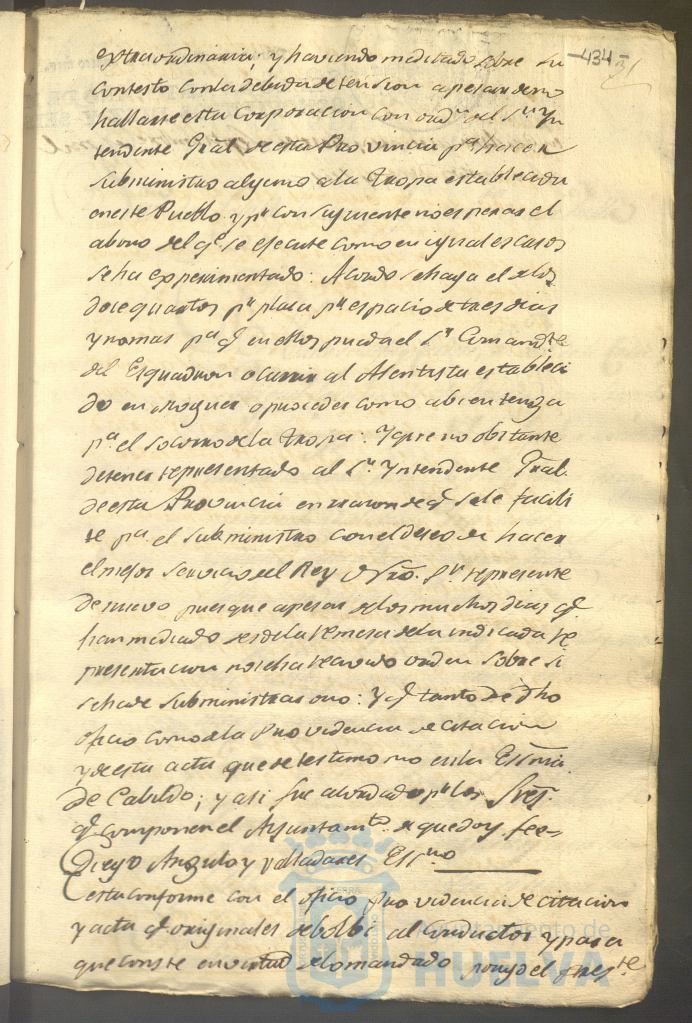 -434-
extraordinaria, y haviendo meditado sobre su
contesto con la debida detension apesar de no
hallarse esta Corporacion con ordn. del Sor. Yn
tendente Gral de esta Provincia pa. hacer
Subministro alguno a la tropa establecida
en este Pueblo y pr. consiguiente no esperar el
abono del q. se ejecute como en iguales casos
se ha experimentado: Acordo se haga el de los
doce quartos pr. plaza pr. espacio de tres dias
y no mas pa. q en ellos pueda el Sr. Comandte.
del Esquadron ocurrir al Asentista estableci
do en Moguer o proceder como a bien tenga
pa. el socorro de la tropa: Y que no obstante
de tener representado al Sr. Yntendente Gral.
de esta Provincia en razon de q se le facili
te pa. el subministro con el deseo de hacer
el mejor servicio del Rey Ntro. Sr. represente
de nuevo pues que apesar de los muchos dias q
han mediado desde la remesa de la indicada re
presentacion no se ha recivido orden sobre si
se ha de subministrar o no: Y q tanto de dho
oficio como de la Providencia de citacion
y de esta acta quede testimonio en la Essnia.
De Cabildo; y asi fue acordado pr. los Sres.
q componen el Ayuntamto. de que doy fee=
Diego Angulo y Valladares Essno
esta conforme con el oficio providencia de citacion
y acta q originales debolbi al Conductor y para
que conste en virtud de lo mandado pongo el preste.
Ayuntamiento de
HUELVA